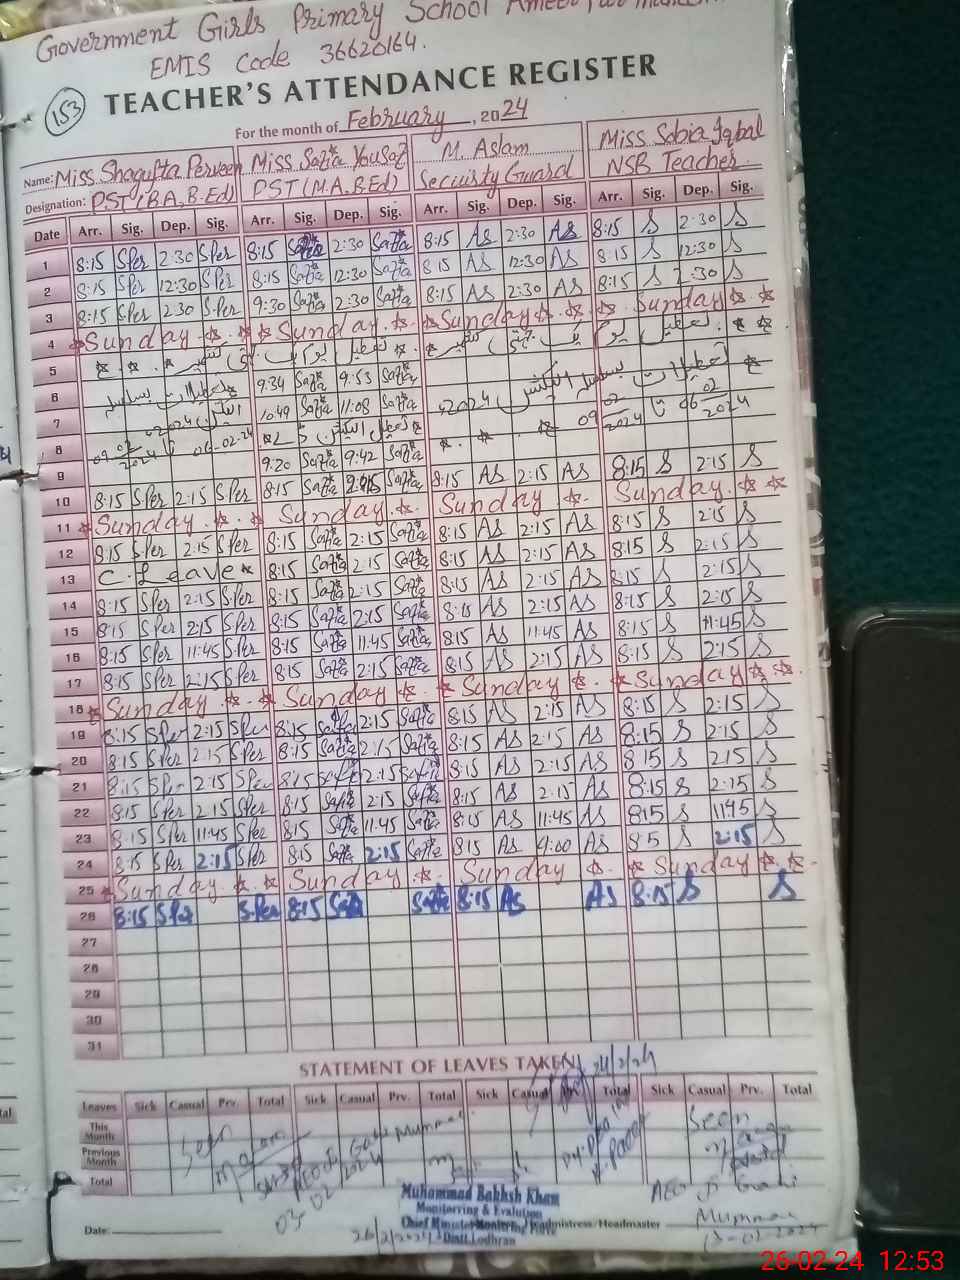 Government Girls Primary School
EMIS Code 36620164.
153
TEACHER'S ATTENDANCE REGISTER
For the month of February, 2024
Name: Miss Shagufta Perveen Miss Safia Yousaf M. Aslam Miss Sobia Iqbal
Designation: PST (B.A, B-Ed) PST (M.A, B.Ed) Security Guard NSB Teacher
Date Arr. Sig. Dep. Sig. Arr. Sig. Dep. Sig. Arr. Sig. Dep. Sig. Arr. Sig. Dep. Sig.
1 8:15 SPer 2:30 SPer 8:15 Safia 2:30 Safia 8:15 AS 2:30 AS 8:15 S 2:30 S
2 8:15 SPer 12:30 SPer 8:15 Safia 12:30 Safia 8:15 AS 12:30 AS 8:15 S 12:30 S
3 8:15 SPer 2:30 SPer 9:30 Safia 2:30 Safia 8:15 AS 2:30 AS 8:15 S 2:30 S
4 Sunday Sunday Sunday Sunday
5 تعطیل یوم یکجہتی کشمیر
6 تعطیلات بسلسلہ 9:34 Safia 9:53 Safia تعطیلات بسلسلہ الیکشن 2024
7 الیکشن 2024 10:49 Safia 11:08 Safia 09 02/2024 تا 06 02/2024
8 09 02/2024 تا 06-02-24 تعطیل الیکشن
9 9:20 Safia 9:42 Safia
10 8:15 SPer 2:15 SPer 8:15 Safia 2:15 Safia 8:15 AS 2:15 AS 8:15 S 2:15 S
11 Sunday Sunday Sunday Sunday
12 8:15 SPer 2:15 SPer 8:15 Safia 2:15 Safia 8:15 AS 2:15 AS 8:15 S 2:15 S
13 C. Leave 8:15 Safia 2:15 Safia 8:15 AS 2:15 AS 8:15 S 2:15 S
14 8:15 SPer 2:15 SPer 8:15 Safia 2:15 Safia 8:15 AS 2:15 AS 8:15 S 2:15 S
15 8:15 SPer 2:15 SPer 8:15 Safia 2:15 Safia 8:15 AS 2:15 AS 8:15 S 2:15 S
16 8:15 SPer 11:45 SPer 8:15 Safia 11:45 Safia 8:15 AS 11:45 AS 8:15 S 11:45 S
17 8:15 SPer 2:15 SPer 8:15 Safia 2:15 Safia 8:15 AS 2:15 AS 8:15 S 2:15 S
18 Sunday Sunday Sunday Sunday
19 8:15 SPer 2:15 SPer 8:15 Safia 2:15 Safia 8:15 AS 2:15 AS 8:15 S 2:15 S
20 8:15 SPer 2:15 SPer 8:15 Safia 2:15 Safia 8:15 AS 2:15 AS 8:15 S 2:15 S
21 8:15 SPer 2:15 SPer 8:15 Safia 2:15 Safia 8:15 AS 2:15 AS 8:15 S 2:15 S
22 8:15 SPer 2:15 SPer 8:15 Safia 2:15 Safia 8:15 AS 2:15 AS 8:15 S 2:15 S
23 8:15 SPer 11:45 SPer 8:15 Safia 11:45 Safia 8:15 AS 11:45 AS 8:15 S 11:45 S
24 8:15 SPer 2:15 SPer 8:15 Safia 2:15 Safia 8:15 AS 9:00 AS 8:5 S 2:15 S
25 Sunday Sunday Sunday Sunday
26 8:15 SPer SPer 8:15 Safia Safia 8:15 AS AS 8:15 S S
27
28
29
30
31
STATEMENT OF LEAVES TAKEN 24/2/24
Leaves Sick Casual Prv. Total Sick Casual Prv. Total Sick Casual Prv. Total Sick Casual Prv. Total
This Month
Previous Month
Total
Seen
AEO
Muhammad Bakhsh Khan
Monitoring & Evalution
Chief Minister Monitoring Force
Distt Lodhran
Date: 26/2/2024 Headmistress/Headmaster
26-02-24 12:53